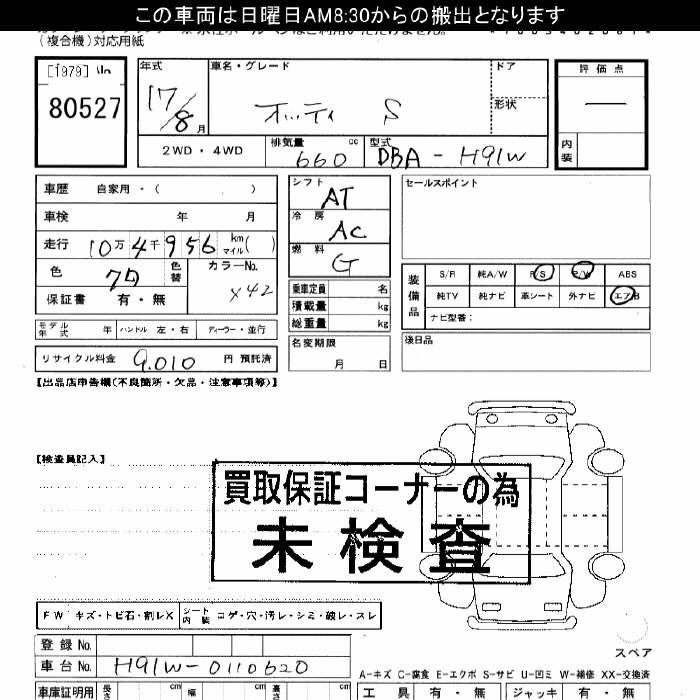 この車両は日曜日AM8:30からの搬出となります
(複合機)対応用紙
[1979]
80527
年式 17/8月
車名・グレード オッティ S
ドア
形状
評価点 —
内装
2WD・4WD
排気量 660 cc
型式 DBA-H91W
車歴 自家用・( )
車検 年 月
走行 10万4千956 km マイル( )
色 クロ 色替
カラーNo. X42
保証書 有・無
シフト AT
冷房 AC
燃料 G
乗車定員 名
積載量 kg
総重量 kg
名変期限 月 日
セールスポイント
装備品 S/R 純A/W P/S P/W ABS
純TV 純ナビ 革シート 外ナビ エアB
ナビ型番:
後日品
モデル年式 年 ハンドル 左・右 ディーラー・並行
リサイクル料金 9,010 円 預託済
【出品店申告欄(不良箇所・欠品・注意事項等)】
【検査員記入】
買取保証コーナーの為
未検査
FW キズ・トビ石・割レX シート内装 コゲ・穴・汚レ・シミ・破レ・スレ
登録No.
車台No. H91W-0110620
スペア
A-キズ C-腐食 E-エクボ S-サビ U-凹ミ W-補修 XX-交換済
車庫証明用 長さ cm 幅 cm 高さ cm
工具 有・無 ジャッキ 有・無